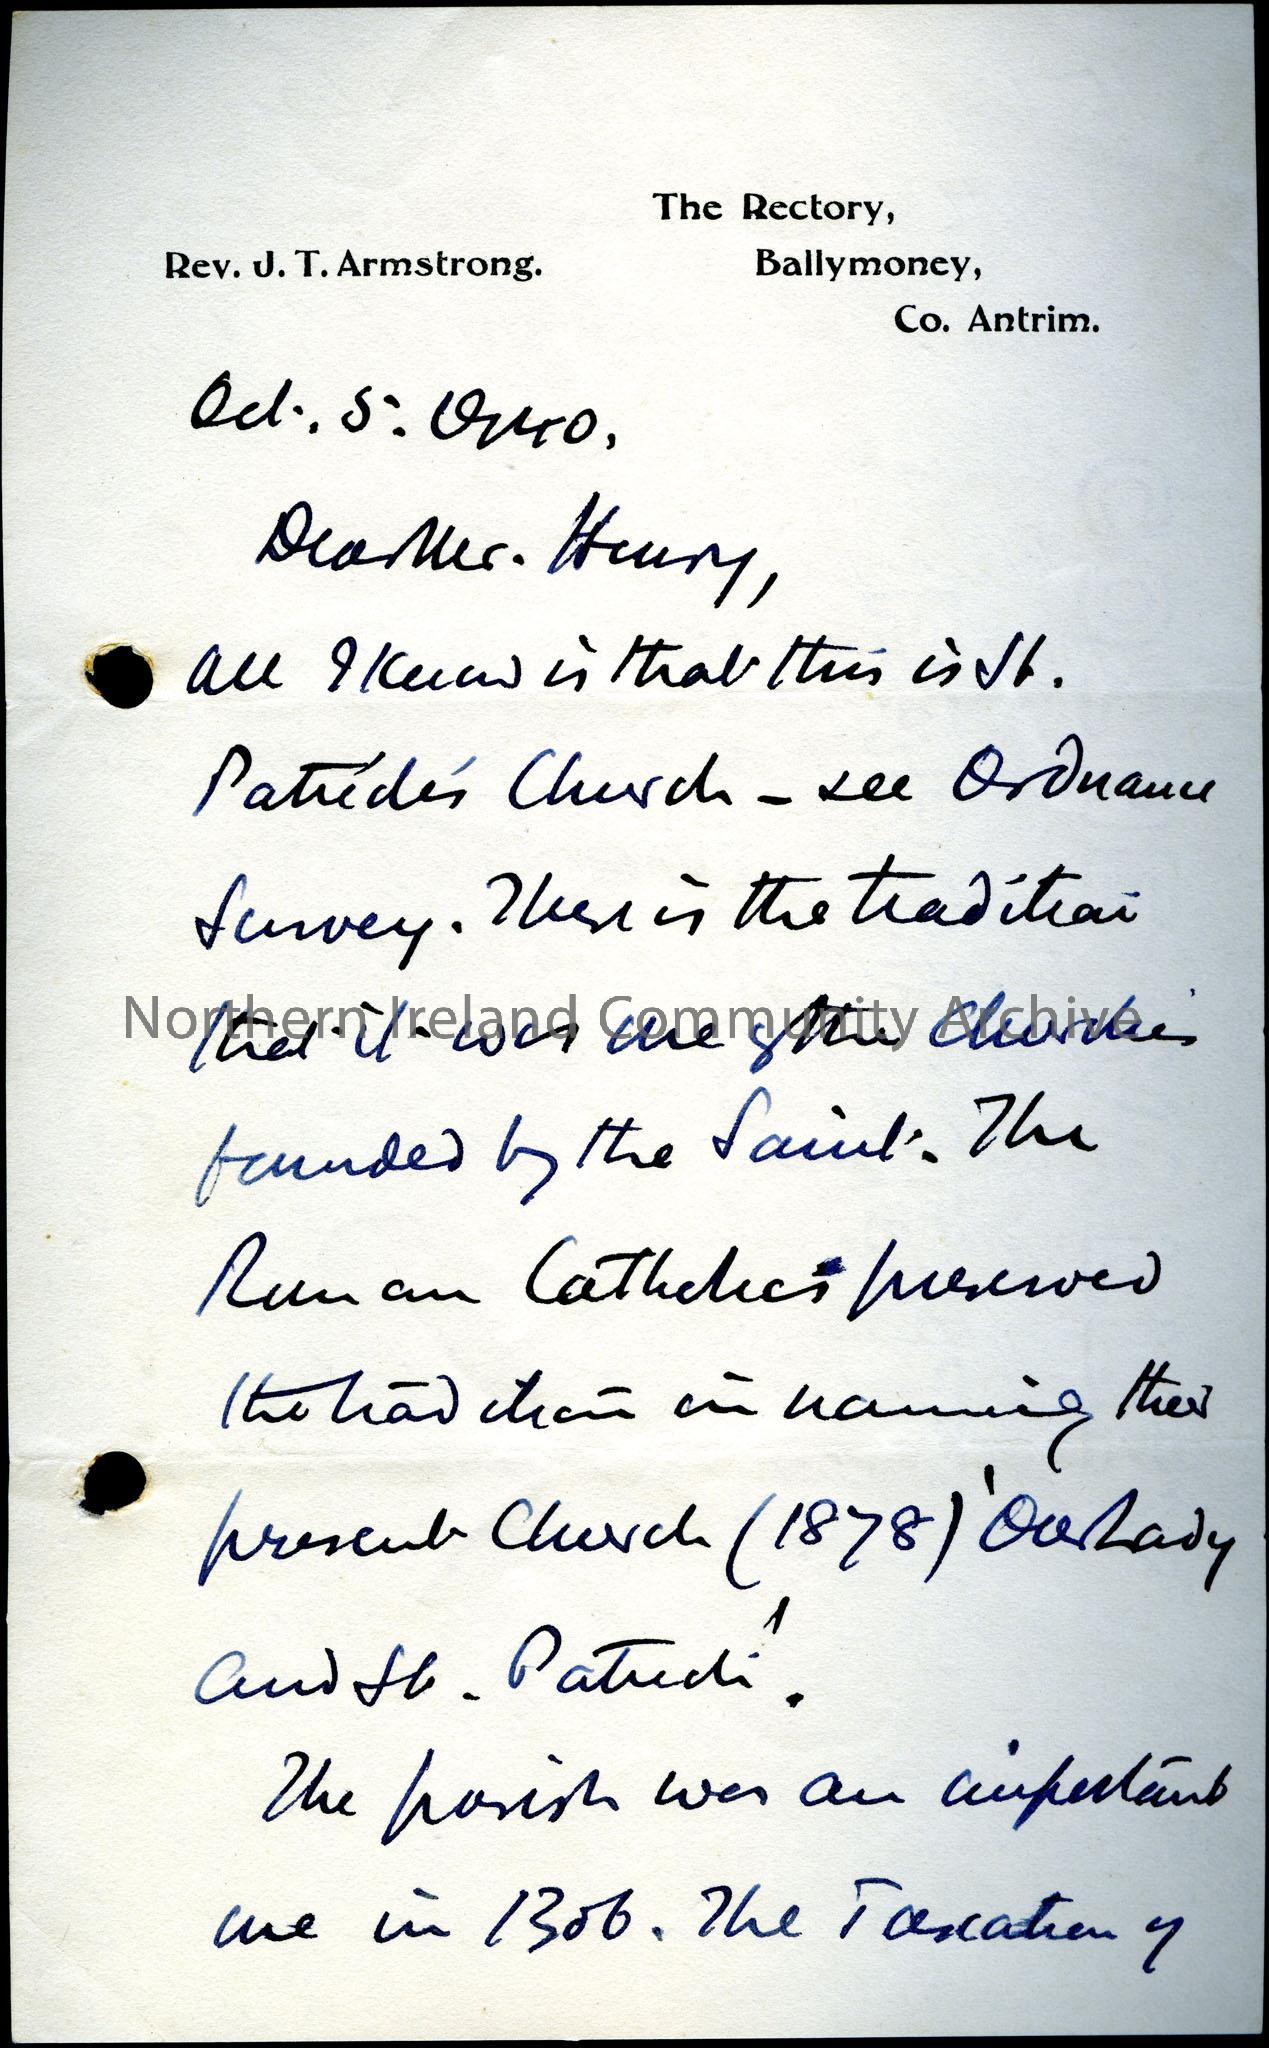 The Rectory,
Rev. J. T. Armstrong.
Ballymoney,
Co. Antrim.
Oct. 5. 1940.
Dear Mr. Henry,
All I know is that this is St.
Patrick's Church – see Ordnance
Survey. There is the tradition
Northern Ireland Community Archive
that it was one of the Churches
founded by the Saint. The
Roman Catholics preserved
the tradition in naming their
present Church (1878) 'Our Lady
and St. Patrick'.
The parish was an important
one in 1306. The Taxation of